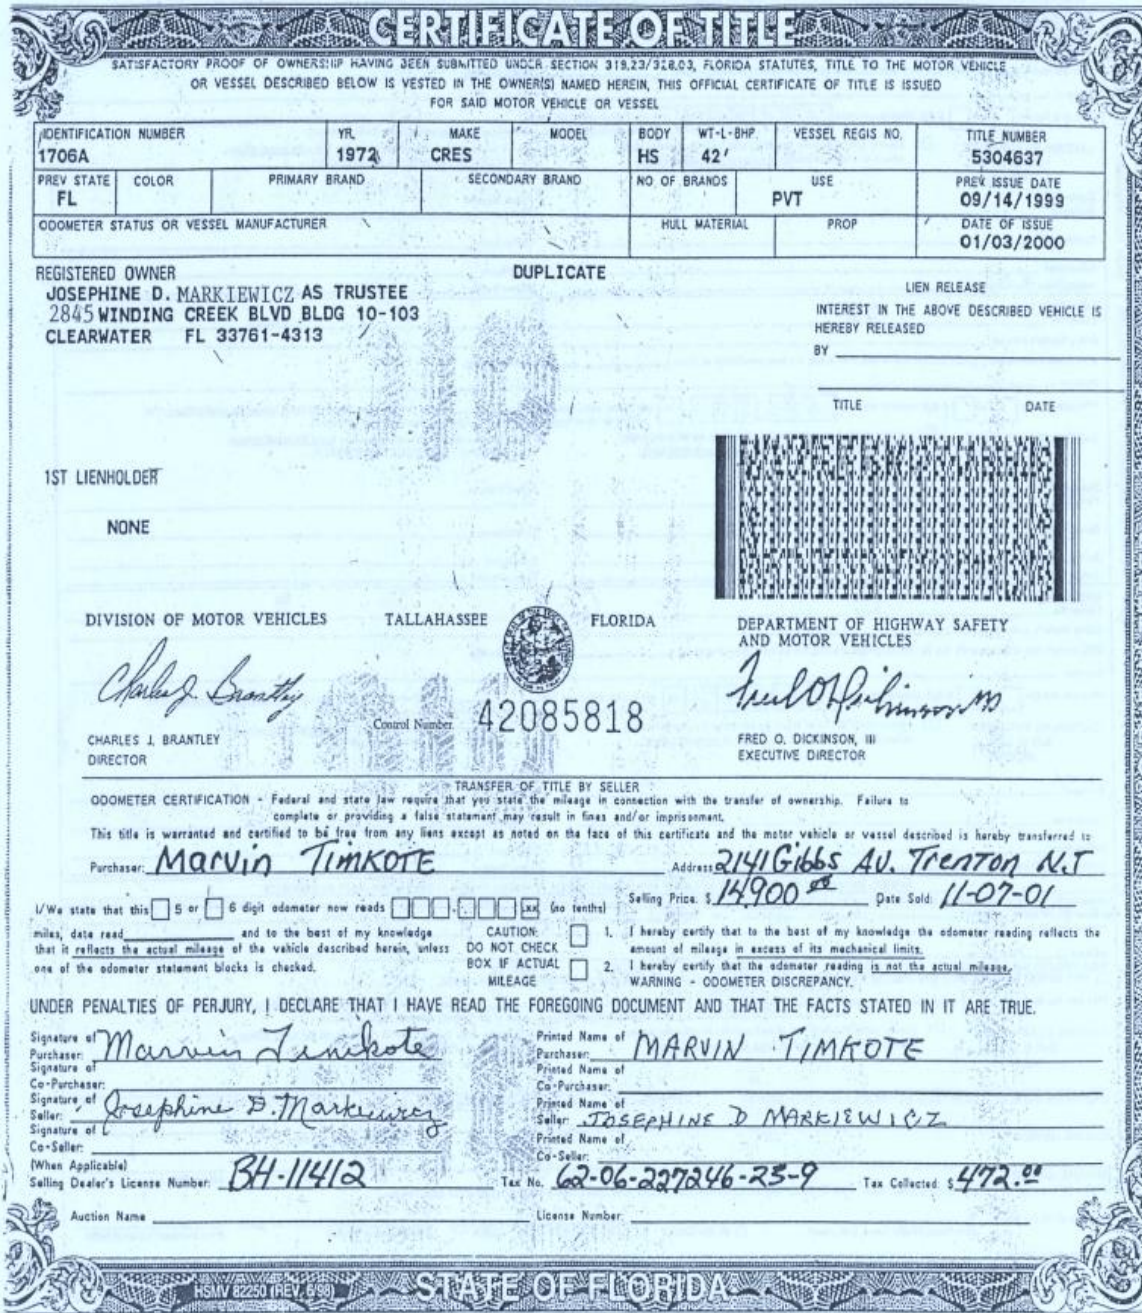 CERTIFICATE OF TITLE
SATISFACTORY PROOF OF OWNERSHIP HAVING BEEN SUBMITTED UNDER SECTION 319.23/328.03, FLORIDA STATUTES, TITLE TO THE MOTOR VEHICLE
OR VESSEL DESCRIBED BELOW IS VESTED IN THE OWNER(S) NAMED HEREIN, THIS OFFICIAL CERTIFICATE OF TITLE IS ISSUED
FOR SAID MOTOR VEHICLE OR VESSEL
IDENTIFICATION NUMBER YR. MAKE MODEL BODY WT-L-BHP. VESSEL REGIS NO. TITLE NUMBER
1706A 1972 CRES HS 42' 5304637
PREV STATE COLOR PRIMARY BRAND SECONDARY BRAND NO OF BRANDS USE PREV ISSUE DATE
FL PVT 09/14/1999
ODOMETER STATUS OR VESSEL MANUFACTURER HULL MATERIAL PROP DATE OF ISSUE
01/03/2000
REGISTERED OWNER DUPLICATE
JOSEPHINE D. MARKIEWICZ AS TRUSTEE
2845 WINDING CREEK BLVD BLDG 10-103
CLEARWATER FL 33761-4313
LIEN RELEASE
INTEREST IN THE ABOVE DESCRIBED VEHICLE IS
HEREBY RELEASED
BY
TITLE DATE
1ST LIENHOLDER
NONE
DIVISION OF MOTOR VEHICLES TALLAHASSEE FLORIDA
DEPARTMENT OF HIGHWAY SAFETY
AND MOTOR VEHICLES
Charles J. Brantley
Control Number 42085818
CHARLES J. BRANTLEY
DIRECTOR
FRED O. DICKINSON, III
EXECUTIVE DIRECTOR
TRANSFER OF TITLE BY SELLER
ODOMETER CERTIFICATION - Federal and state law require that you state the mileage in connection with the transfer of ownership. Failure to
complete or providing a false statement may result in fines and/or imprisonment.
This title is warranted and certified to be free from any liens except as noted on the face of this certificate and the motor vehicle or vessel described is hereby transferred to:
Purchaser: Marvin TIMKOTE Address 2141 Gibbs AV. Trenton N.J
Selling Price. $ 14,900 00 Date Sold: 11-07-01
I/We state that this 5 or 6 digit odometer now reads .xx (no tenths)
miles, date read and to the best of my knowledge
that it reflects the actual mileage of the vehicle described herein, unless
one of the odometer statement blocks is checked.
CAUTION:
DO NOT CHECK
BOX IF ACTUAL
MILEAGE
1. I hereby certify that to the best of my knowledge the odometer reading reflects the
amount of mileage in excess of its mechanical limits.
2. I hereby certify that the odometer reading is not the actual mileage.
WARNING - ODOMETER DISCREPANCY.
UNDER PENALTIES OF PERJURY, I DECLARE THAT I HAVE READ THE FOREGOING DOCUMENT AND THAT THE FACTS STATED IN IT ARE TRUE.
Signature of Purchaser: Marvin Timkote Printed Name of Purchaser: MARVIN TIMKOTE
Signature of Co-Purchaser: Printed Name of Co-Purchaser:
Signature of Seller: Josephine D. Markiewicz Printed Name of Seller: JOSEPHINE D MARKIEWICZ
Signature of Co-Seller: Printed Name of Co-Seller:
(When Applicable)
Selling Dealer's License Number: BH-11412 Tax No. 62-06-227246-23-9 Tax Collected $ 472.00
Auction Name License Number:
HSMV 82250 (REV. 6/98) STATE OF FLORIDA